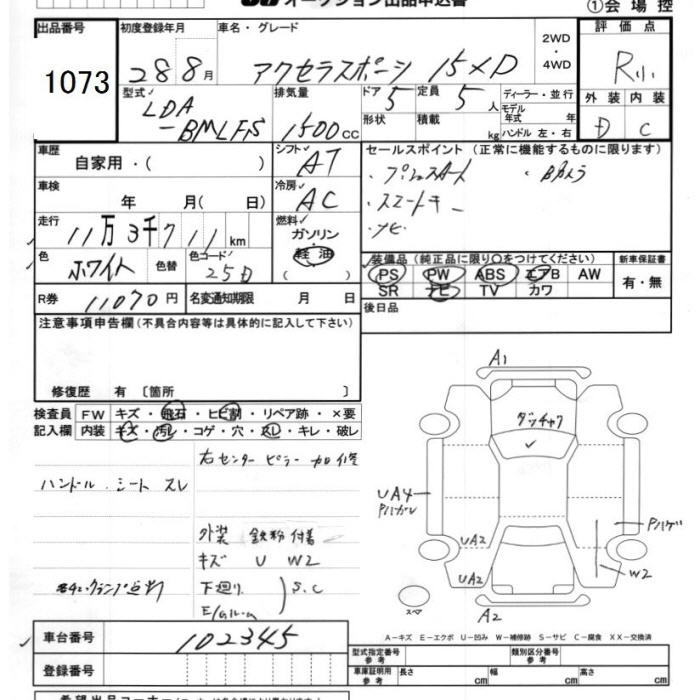 オークション出品申込書
①会場控
出品番号
1073
初度登録年月
28 8月
車名・グレード
アクセラスポーツ 15XD
2WD
・
4WD
評価点
R
外装 内装
D C
型式
LDA
-BMLFS
排気量
1500cc
ドア 5
形状
定員 5人
積載 kg
ディーラー・並行
モデル
年式 年
ハンドル 左・右
車歴
自家用・( )
シフト AT
車検
年 月(日)
冷房 AC
走行
11万3千711km
燃料
ガソリン
軽油
( )
色
ホワイト
色替
色コード
25D
R券 11070円
名変通知期限 月 日
セールスポイント(正常に機能するものに限ります)
・プッシュスタート ・Bカメラ
・スマートキー
・ナビ
装備品(純正品に限り〇をつけてください)
PS PW ABS エアB AW
SR ナビ TV カワ
新車保証書
有・無
後日品
注意事項申告欄(不具合内容等は具体的に記入して下さい)
修復歴 有〔箇所 〕
検査員
記入欄
FW キズ・飛石・ヒビ割・リペア跡・×要
内装 キズ・汚レ・コゲ・穴・スレ・キレ・破レ
右センターピラー加修
ハンドル.シート スレ
外装 鉄粉付着
キズ U W2
下廻り
E/Gルーム
S.C
A1
ダッチャク
UA4
UA2
UA2
W2
スペア
A2
A−キズ E−エクボ U−凹み W−補修跡 S−サビ C−腐食 XX−交換済
車台番号 102345
登録番号
型式指定番号
参考
類別区分番号
参考
車検証明用
参考
長さ cm
幅 cm
高さ cm